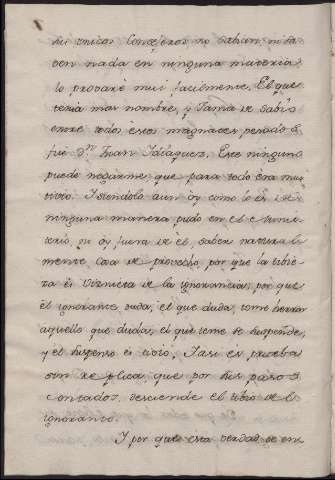 sus unicos Consejeros no sabian, ni sa
ben nada en ninguna materia
lo probaré mui facilmente. El que
tenia mas nombre, y fama de sabio
entre todos estos magnates pasados
fué Dn. Juan Idiaquez. Este ninguno
puede negarme que para todo era mui
tivio. Y siendolo aun oy como lo es, de
ninguna manera pudo en el
terio, ni oy fuera de el, saber natural
mente cosa de provecho, por que la tibie
za es Visnieta de la ignorancia; por que
el ignorante duda, el que duda, teme herrar
aquello que duda; el que teme se suspende,
y el suspenso es tibio, Y asi es prueba
sin replica, que por sus pasos
contados, desciende el tibio de lo
ignorante.
Y por que esta verdad se en